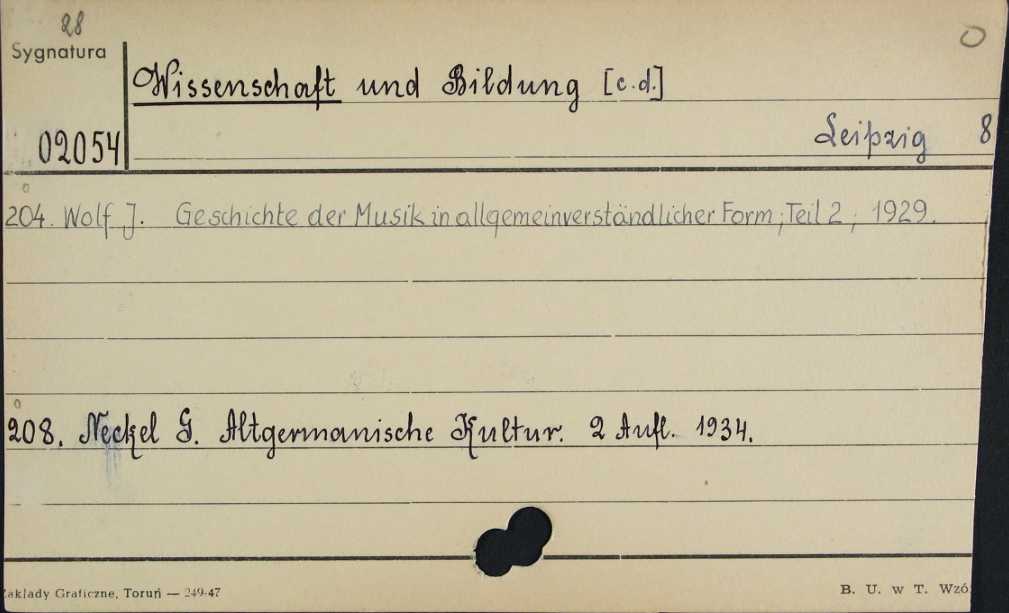 28
Sygnatura
Wissenschaft und Bildung [c.d.]
02054
Leipzig 8
204. Wolf J. Geschichte der Musik in allgemeinverständlicher Form; Teil 2; 1929.
208. Neckel G. Altgermanische Kultur. 2 Aufl. 1934.
Zakłady Graficzne, Toruń — 249-47
B. U. w T.